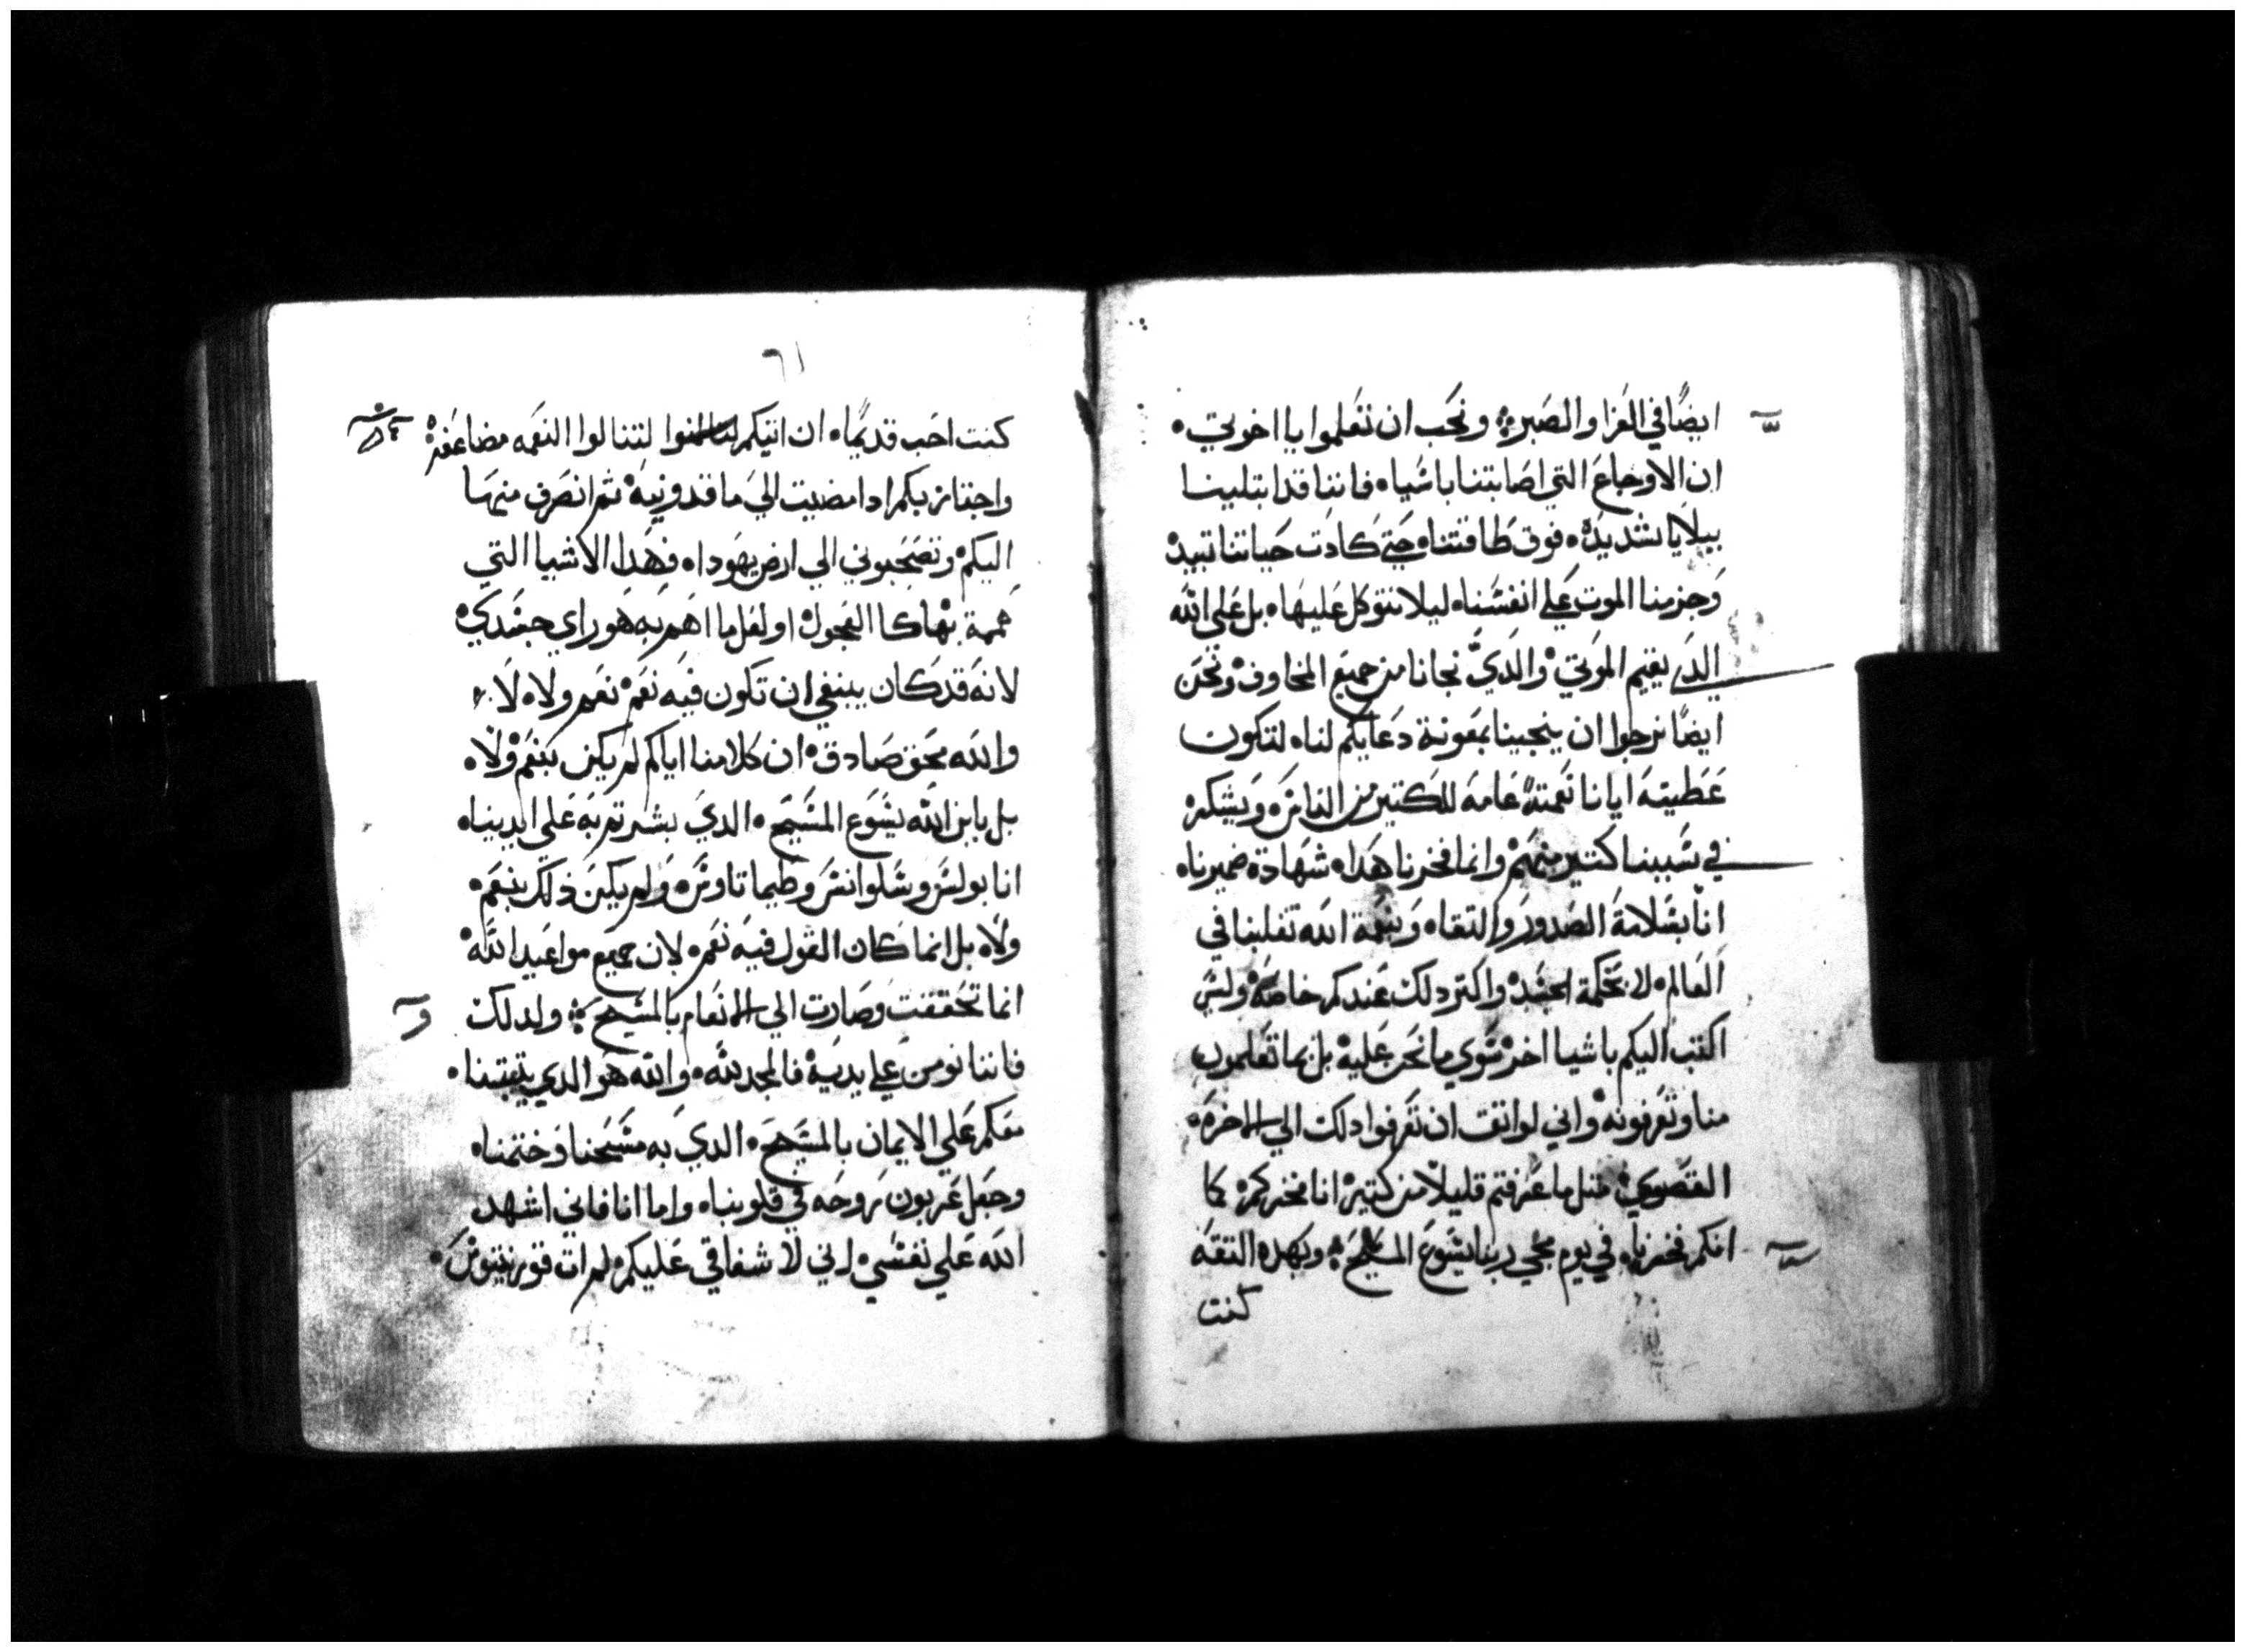 ايضًا في العزا والصبر ونحب ان تعلموا يا اخوتي
ان الاوجاع التي اصابتنا باشياه فاننا قد ابتلينا
ببلايا شديده فوق طاقتناه حتى كادت حياتنا تبيد
وجزمنا الموت علي انفسناه ليلا نتوكل عليها بل علي الله
الدي يقيم الموتي والدي نجانا من جميع المخاوف ونحن
ايضًا نرجوا ان ينجينا بمعونة دعايكم لناه لتكون
عطيته ايانا نعمتهً عامه للكتير من الناس ويشكر
في سببنا كتير منهم وانما فخرنا هداه شهادة ضميرناه
انا بسلامة الصدور والتقاه وبنعمة الله تقلبنا في
العالم لا بحكمة الجسد واكتر دلك عندكم خاصه وليس
اكتب اليكم باشيا اخر سوي ما نحن عليه بل بما تعلمون
منا وتعرفونه واني لواتق ان تعرفوا دلك الي الاخره
القصوي متل ما عرفتم قليلا من كتير انا فخركم كما
انكم فخرناه في يوم مجي ربنا يسوع المسيح وبهده التقه
كنت
٦١
كنت احب قديمًا ان اتيكم لتنالوا النعمه مضاعفه
واجتاز بكم ادا مضيت الي ماقدونيه ثم انصرف منها
اليكم وتصحبوني الي ارض يهوداه فهدا الاشيا التي
هممة بها كا العجول او لعل ما اهم به هو راي جسدي
لانه قد كان ينبغي ان تكون فيه نعم نعم ولاه لا
والله محق صادق ان كلامنا اياكم لم يكن بنعم ولاه
بل بابن الله يسوع المسيح الدي بشرتم به علي ايديناه
انا بولس وسلوانس وطيماتاوس ولم يكن ذلك بنعم
ولاه بل انما كان القول فيه نعم لان جميع مواعيد الله
انما تحققت وصارت الي الانعام بالمسيح ولدلك
فاننا نومن علي يديه فالمجد لله والله هو الدي يتبتنا
معكم علي الايمان بالمسيح الدي به مسحنا وختمناه
وجعل عربون روحه في قلوبناه واما انا فاني اشهد
الله علي نفسي اني لاشفاقي عليكم لم ات قورنتيوس